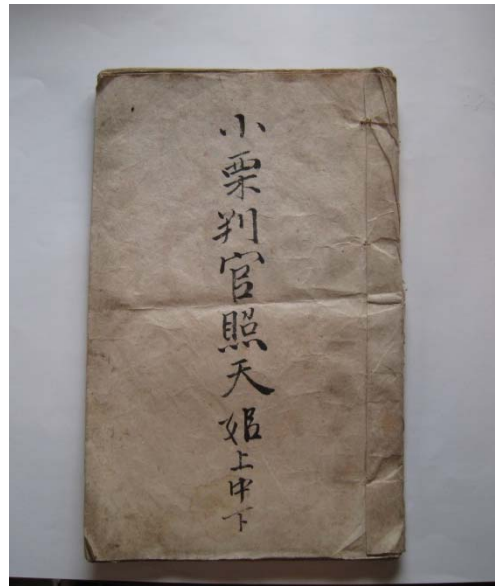 小栗判官照天姫上中下